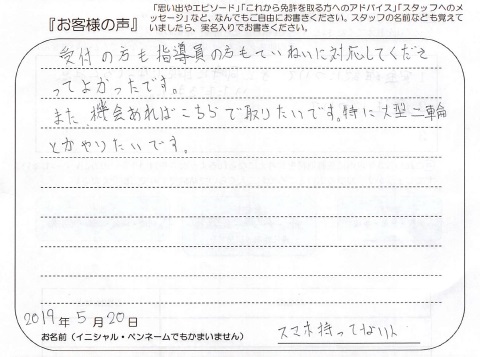 『お客様の声』
「思い出やエピソード」「これから免許を取る方へのアドバイス」「スタッフへのメ
ッセージ」など、なんでもご自由にお書きください。スタッフの名前なども覚えて
いましたら、実名入りでお書きください。
受付の方も指導員の方もていねいに対応してくださ
ってよかったです。
また、機会あればこちらで取りたいです。特に大型二車輪
とかやりたいんです。
2019年5月20日
お名前(イニシャル・ペンネームでもかまいません)
スマホ持ってない人